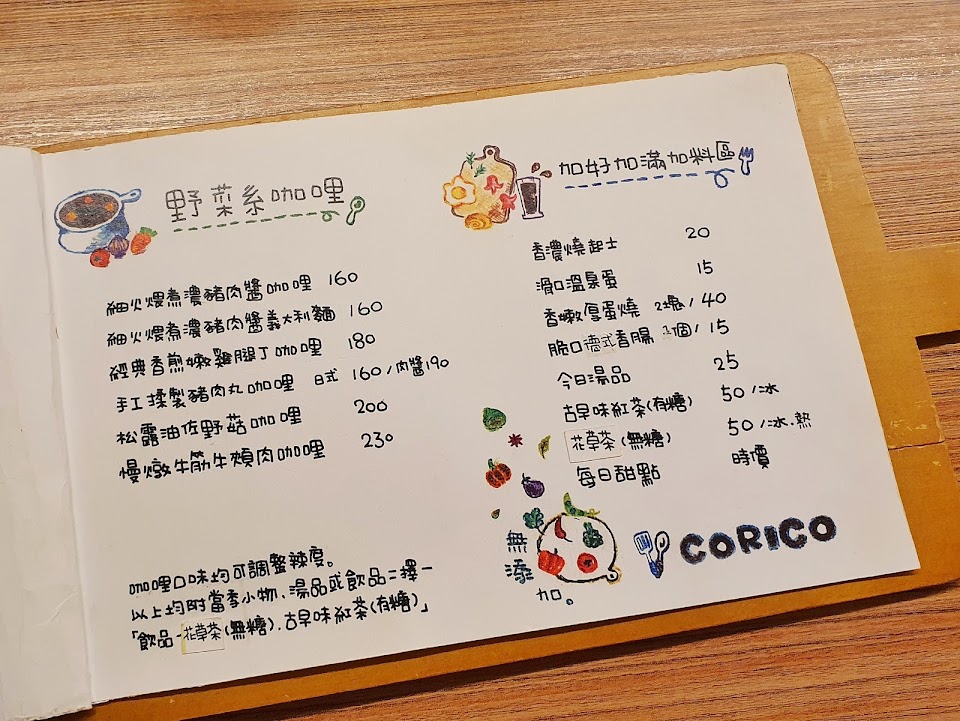 野菜系咖哩
細火煨煮濃豬肉醬咖哩 160
細火煨煮濃豬肉醬義大利麵 160
經典香煎嫩雞腿丁咖哩 180
手工揉製豬肉丸咖哩 日式 160/肉醬190
松露油佐野菇咖哩 200
慢燉牛筋牛頰肉咖哩 230
咖哩口味均可調整辣度。
以上均附當季小物、湯品或飲品二擇一
「飲品-花草茶(無糖).古早味紅茶(有糖)」
加好加滿加料區
香濃燒起士 20
滑口溫泉蛋 15
香嫩厚蛋燒 2塊/40
脆口德式香腸 1個/15
今日湯品 25
古早味紅茶(有糖) 50/冰
花草茶(無糖) 50/冰.熱
每日甜點 時價
無
添
加。
CORICO